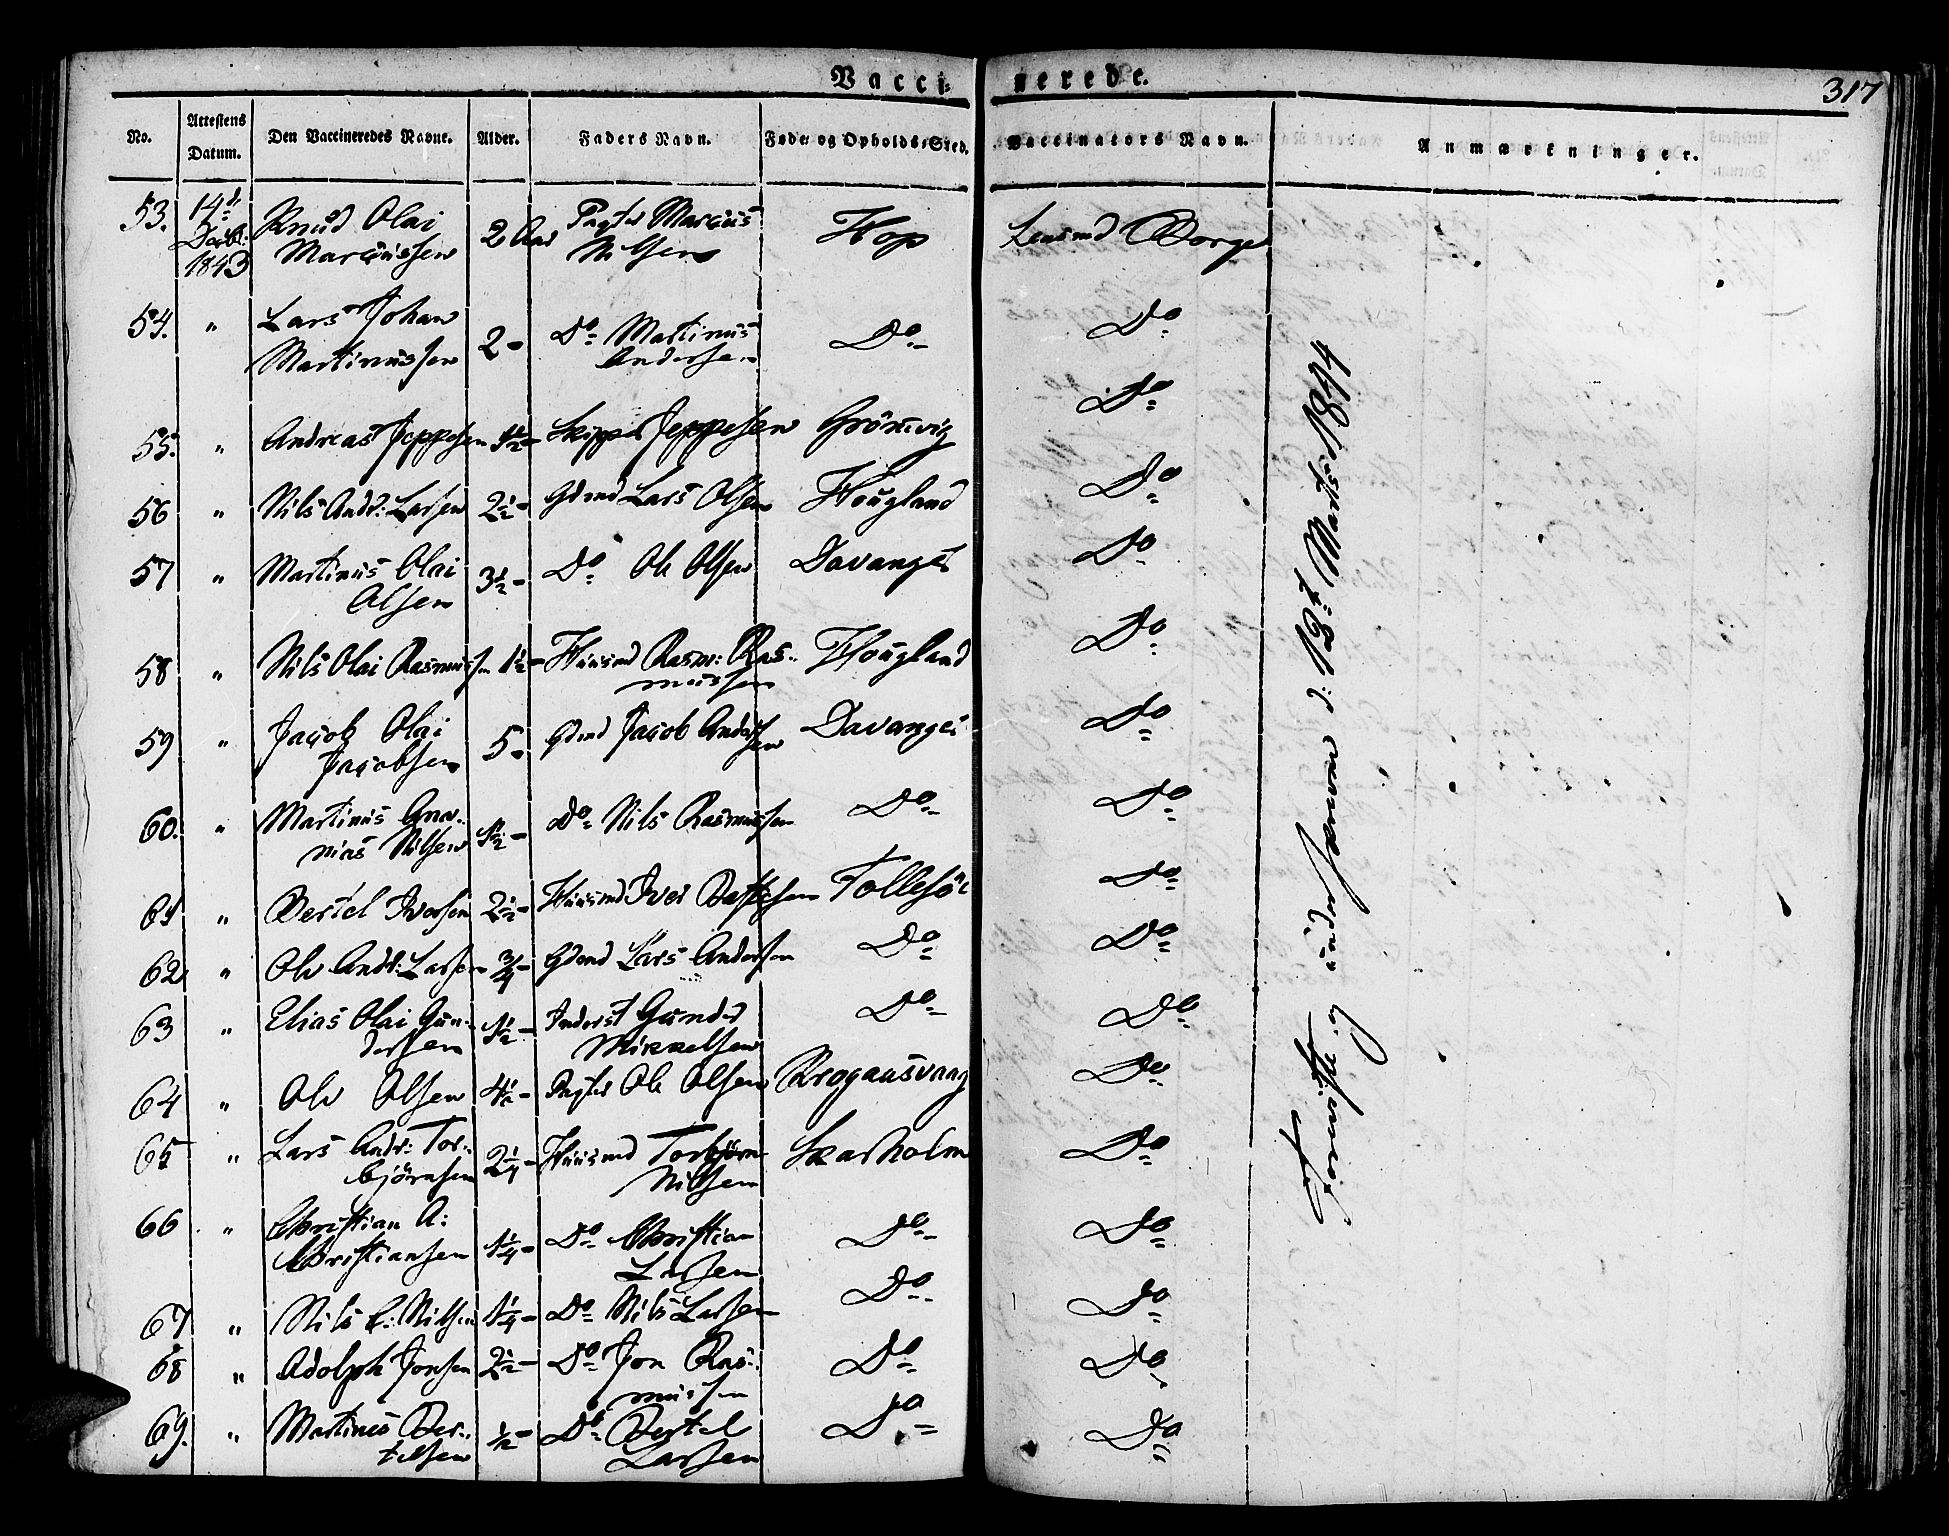 Vacci=
nerede.
317
No.
Attestens Datum.
Den Vaccineredes Navne.
Alder.
Faders Navn.
Føde= og Opholds=Sted.
Vaccinators Navn.
Anmærkninger.
53. 14d Decbr: 1843 Knud Olai 2 Aar Pagter Marcus Hop Lensmd Borge
Marcussen Nilsen
54. " Lars Johan 2 - Do Martinus Do Do
Martinussen Andersen
55. " Andreas Jeppesen 1½ - Skipper Jeppesen Grönvig Do
56 " Nils Andr: Larsen 2½ - Gdmd Lars Olsen Hougland Do
57 " Martinus Olai 3½ - Do Ole Olsen Davanger Do
Olsen
58 " Nils Olai Rasmussen 1½ - Huusmd Rasm: Ras= Hougland Do
mussen
59 " Jacob Olai 5 - Gdmd Jacob Andersen Davanger Do
Jacobsen
60. " Martinus Ana= 1½ - Do Nils Rasmussen Do Do
nias Nilsen
61 " Bertel Iversen 2½ - Huusmd Iver Tollesöe Do
62 " Ole Andr: Larsen ¾ - Gdmd Lars Andersen Do Do
63 " Elias Olai Gun= 1½ - Inderst Gunder Do Do
dersen Mikkelsen
64 " Ole Olsen 4½ - Pagter Ole Olsen Krogaasvaag Do
65 " Lars Andr: Tor= 2¼ - Huusmd Torbjörn Skarholm Do
björnsen Nilsen
66 " Christian A: 1¼ - Do Christian Do Do
Christiansen Larsen
67 " Nils C: Nilsen 1¼ - Do Nils Larsen Do Do
68 " Adolph Jonsen 2½ - Do Jon Ras= Do Do
mussen
69. " Martinus Ber= ½ - Do Bertel Do Do
telsen Larsen
Foreviist og under Samme d: 12t Marts 1844